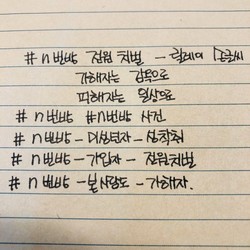 #n번방 전원 처벌 - 릴레이
가해자는 감옥으로
피해자는 일상으로
#n번방 #n번방 사건
#n번방 - 미성년자 - 성착취
#n번방 - 가입자 - 전원처벌
#n번방 - 본사람도 - 가해자.